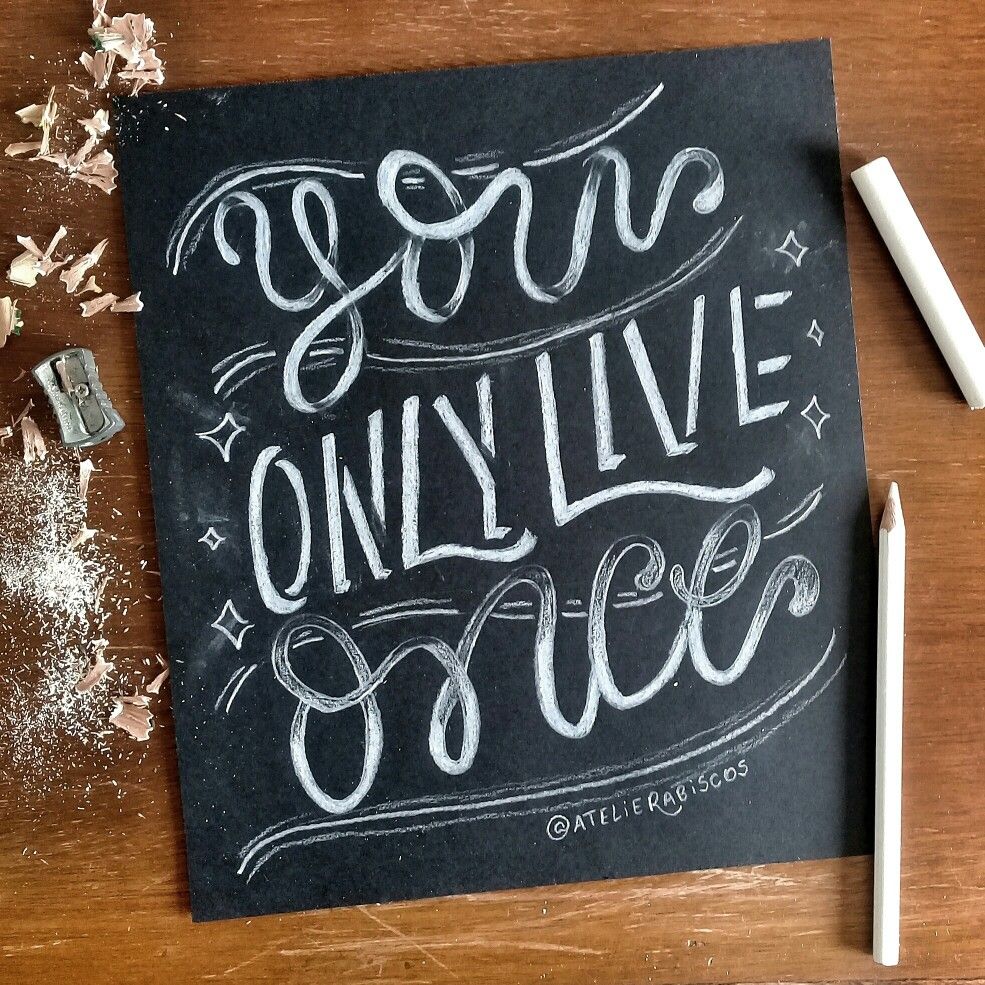 you
ONLY LIVE
once
@ATELIERABISCOS